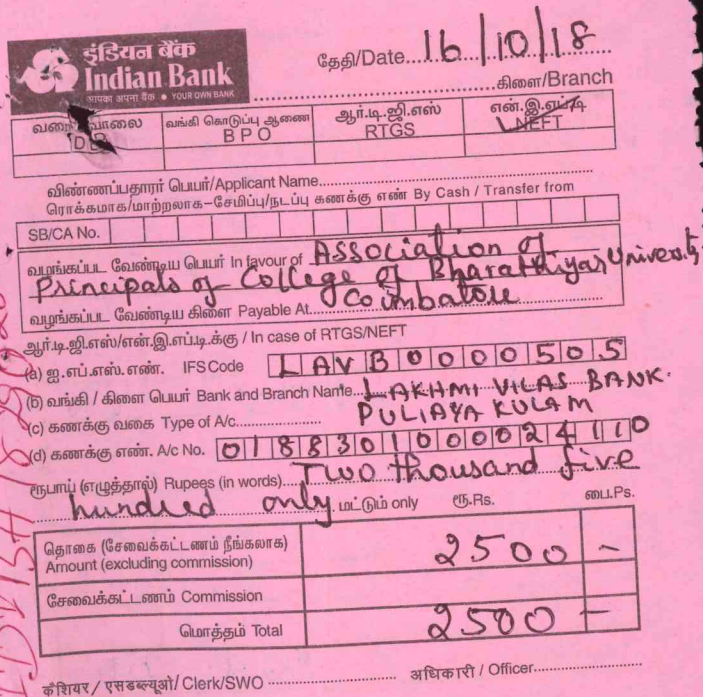 इंडियन बैंक
Indian Bank
आपका अपना बैंक • YOUR OWN BANK
தேதி/Date 16/10/18
கிளை/Branch
வங்கி கொடுப்பு ஆணை ஆர்.டி.ஜி.எஸ் என்.இ.எப்டி
BPO RTGS NEFT
விண்ணப்பதாரர் பெயர்/Applicant Name
ரொக்கமாக/மாற்றலாக-சேமிப்பு/நடப்பு கணக்கு எண் By Cash / Transfer from
SB/CA No.
வழங்கப்பட வேண்டிய பெயர் In favour of Association of
Principals of College of Bharathiyar University
வழங்கப்பட வேண்டிய கிளை Payable At Coimbatore
ஆர்.டி.ஜி.எஸ்/என்.இ.எப்.டி.க்கு / In case of RTGS/NEFT
(a) ஐ.எப்.எஸ். எண். IFS Code LAVB0000505
(b) வங்கி / கிளை பெயர் Bank and Branch Name LAKHMI VILAS BANK.
(c) கணக்கு வகை Type of A/c PULIAYA KULAM
(d) கணக்கு எண். A/c No. 0188301000024110
ரூபாய் (எழுத்தால்) Rupees (in words) Two thousand five
hundred only மட்டும் only ரூ.Rs. பை.Ps.
தொகை (சேவைக்கட்டணம் நீங்கலாக)
Amount (excluding commission) 2500 -
சேவைக்கட்டணம் Commission
மொத்தம் Total 2500 -
कैशियर / एसडब्ल्यूओ/ Clerk/SWO अधिकारी / Officer